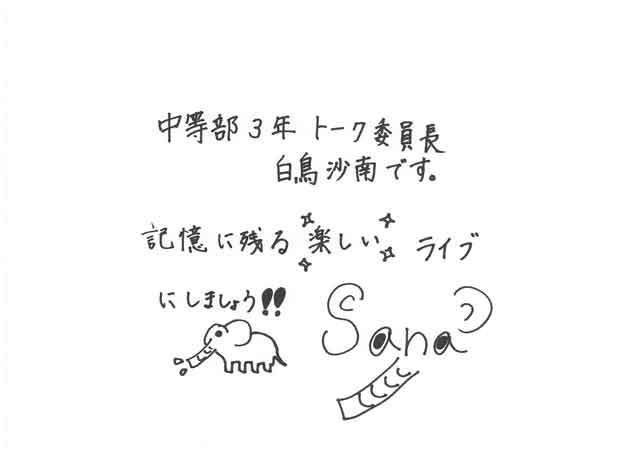 中等部3年 トーク委員長
白鳥沙南です。
記憶に残る 楽しい ライブ
にしましょう!!
Sana